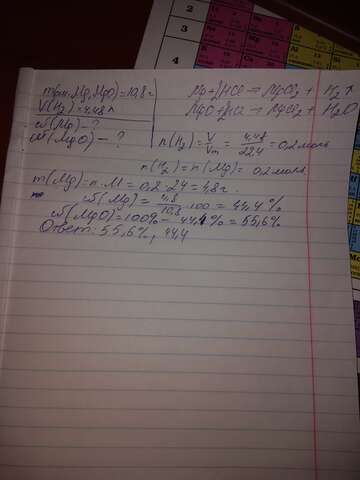 m(см. Mg, MgO) = 10,8 г
V(H₂) = 4,48 л
ω(Mg) - ?
ω(MgO) - ?
Mg + 2HCl → MgCl₂ + H₂↑
MgO + 2HCl → MgCl₂ + H₂O
n(H₂) = V/Vm = 4,48/22,4 = 0,2 моль
n(H₂) = n(Mg) = 0,2 моль
m(Mg) = n · M = 0,2 · 24 = 4,8 г.
ω(Mg) = 4,8/10,8 · 100 = 44,4 %
ω(MgO) = 100% - 44,4% = 55,6%
Ответ: 55,6%, 44,4